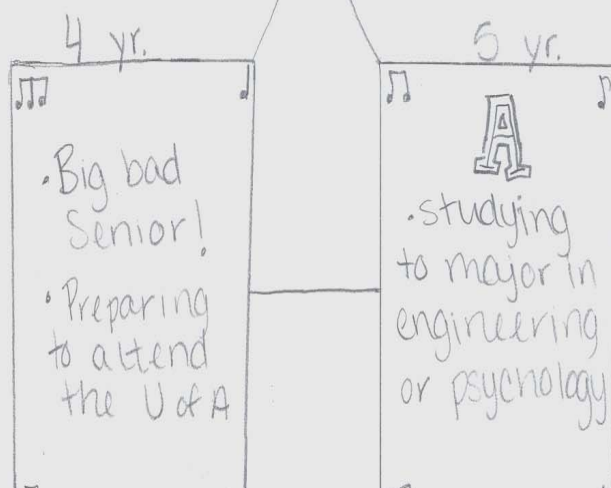 4 yr.
• Big bad
Senior!
• Preparing
to attend
the U of A
5 yr.
A
• studying
to major in
engineering
or psychology